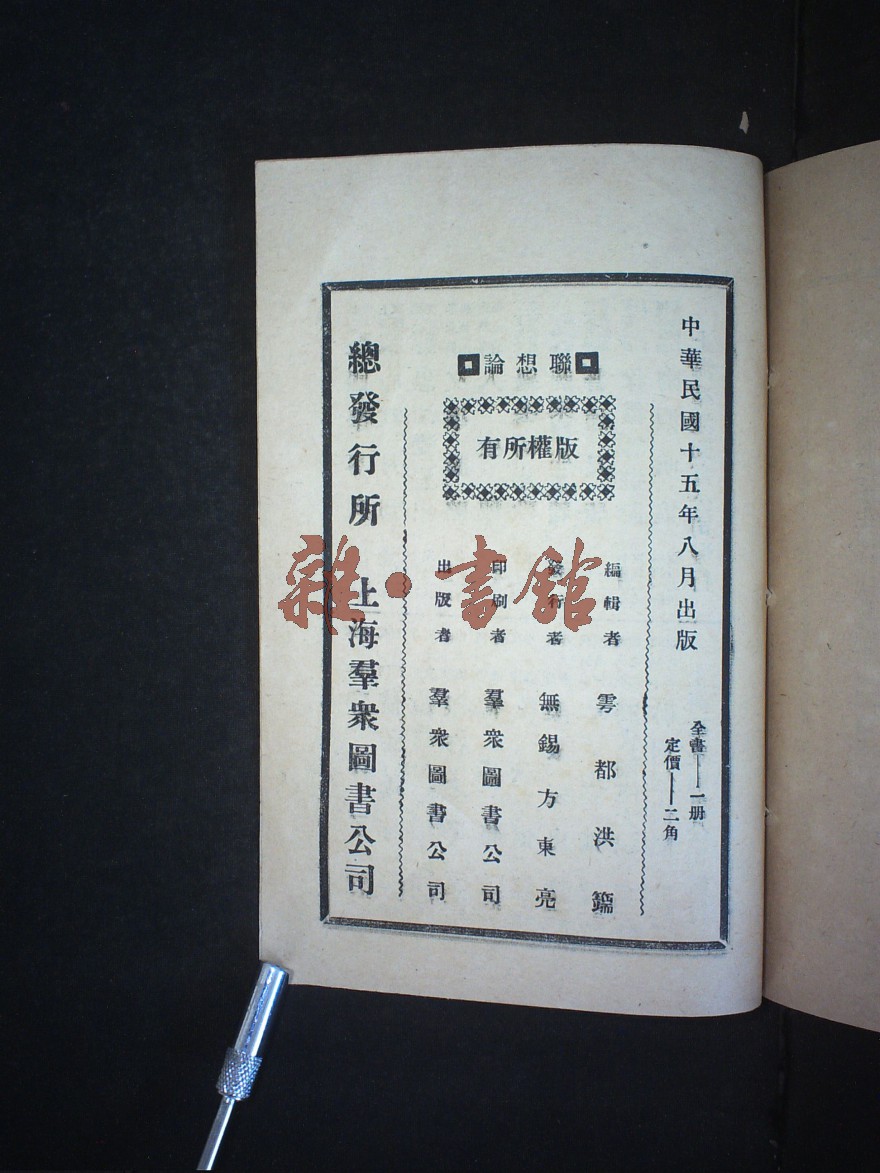 中華民國十五年八月出版
全書——一册
定價——二角
聯想論
版權所有
編輯者 雩都洪
發行者 無錫方東亮
印刷者 羣衆圖書公司
出版者 羣衆圖書公司
總發行所 上海羣衆圖書公司
雜·書館